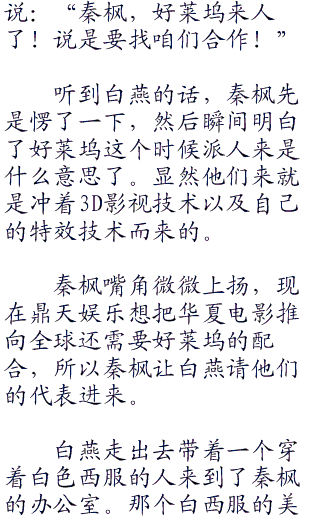 说：“秦枫，好菜坞来人
了！说是要找咱们合作！”
听到白燕的话，秦枫先
是愣了一下，然后瞬间明白
了好菜坞这个时候派人来是
什么意思了。显然他们来就
是冲着3D影视技术以及自己
的特效技术而来的。
秦枫嘴角微微上扬，现
在鼎天娱乐想把华夏电影推
向全球还需要好菜坞的配
合，所以秦枫让白燕请他们
的代表进来。
白燕走出去带着一个穿
着白色西服的人来到了秦枫
的办公室。那个白西服的美